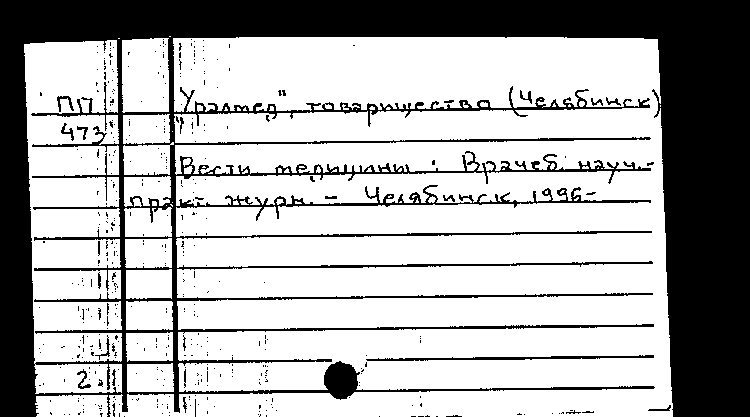 ПП "Уралмед", товарищество (Челябинск)
473
Вести медицины : Врачеб. науч.-
практ. журн. - Челябинск, 1996-
2.